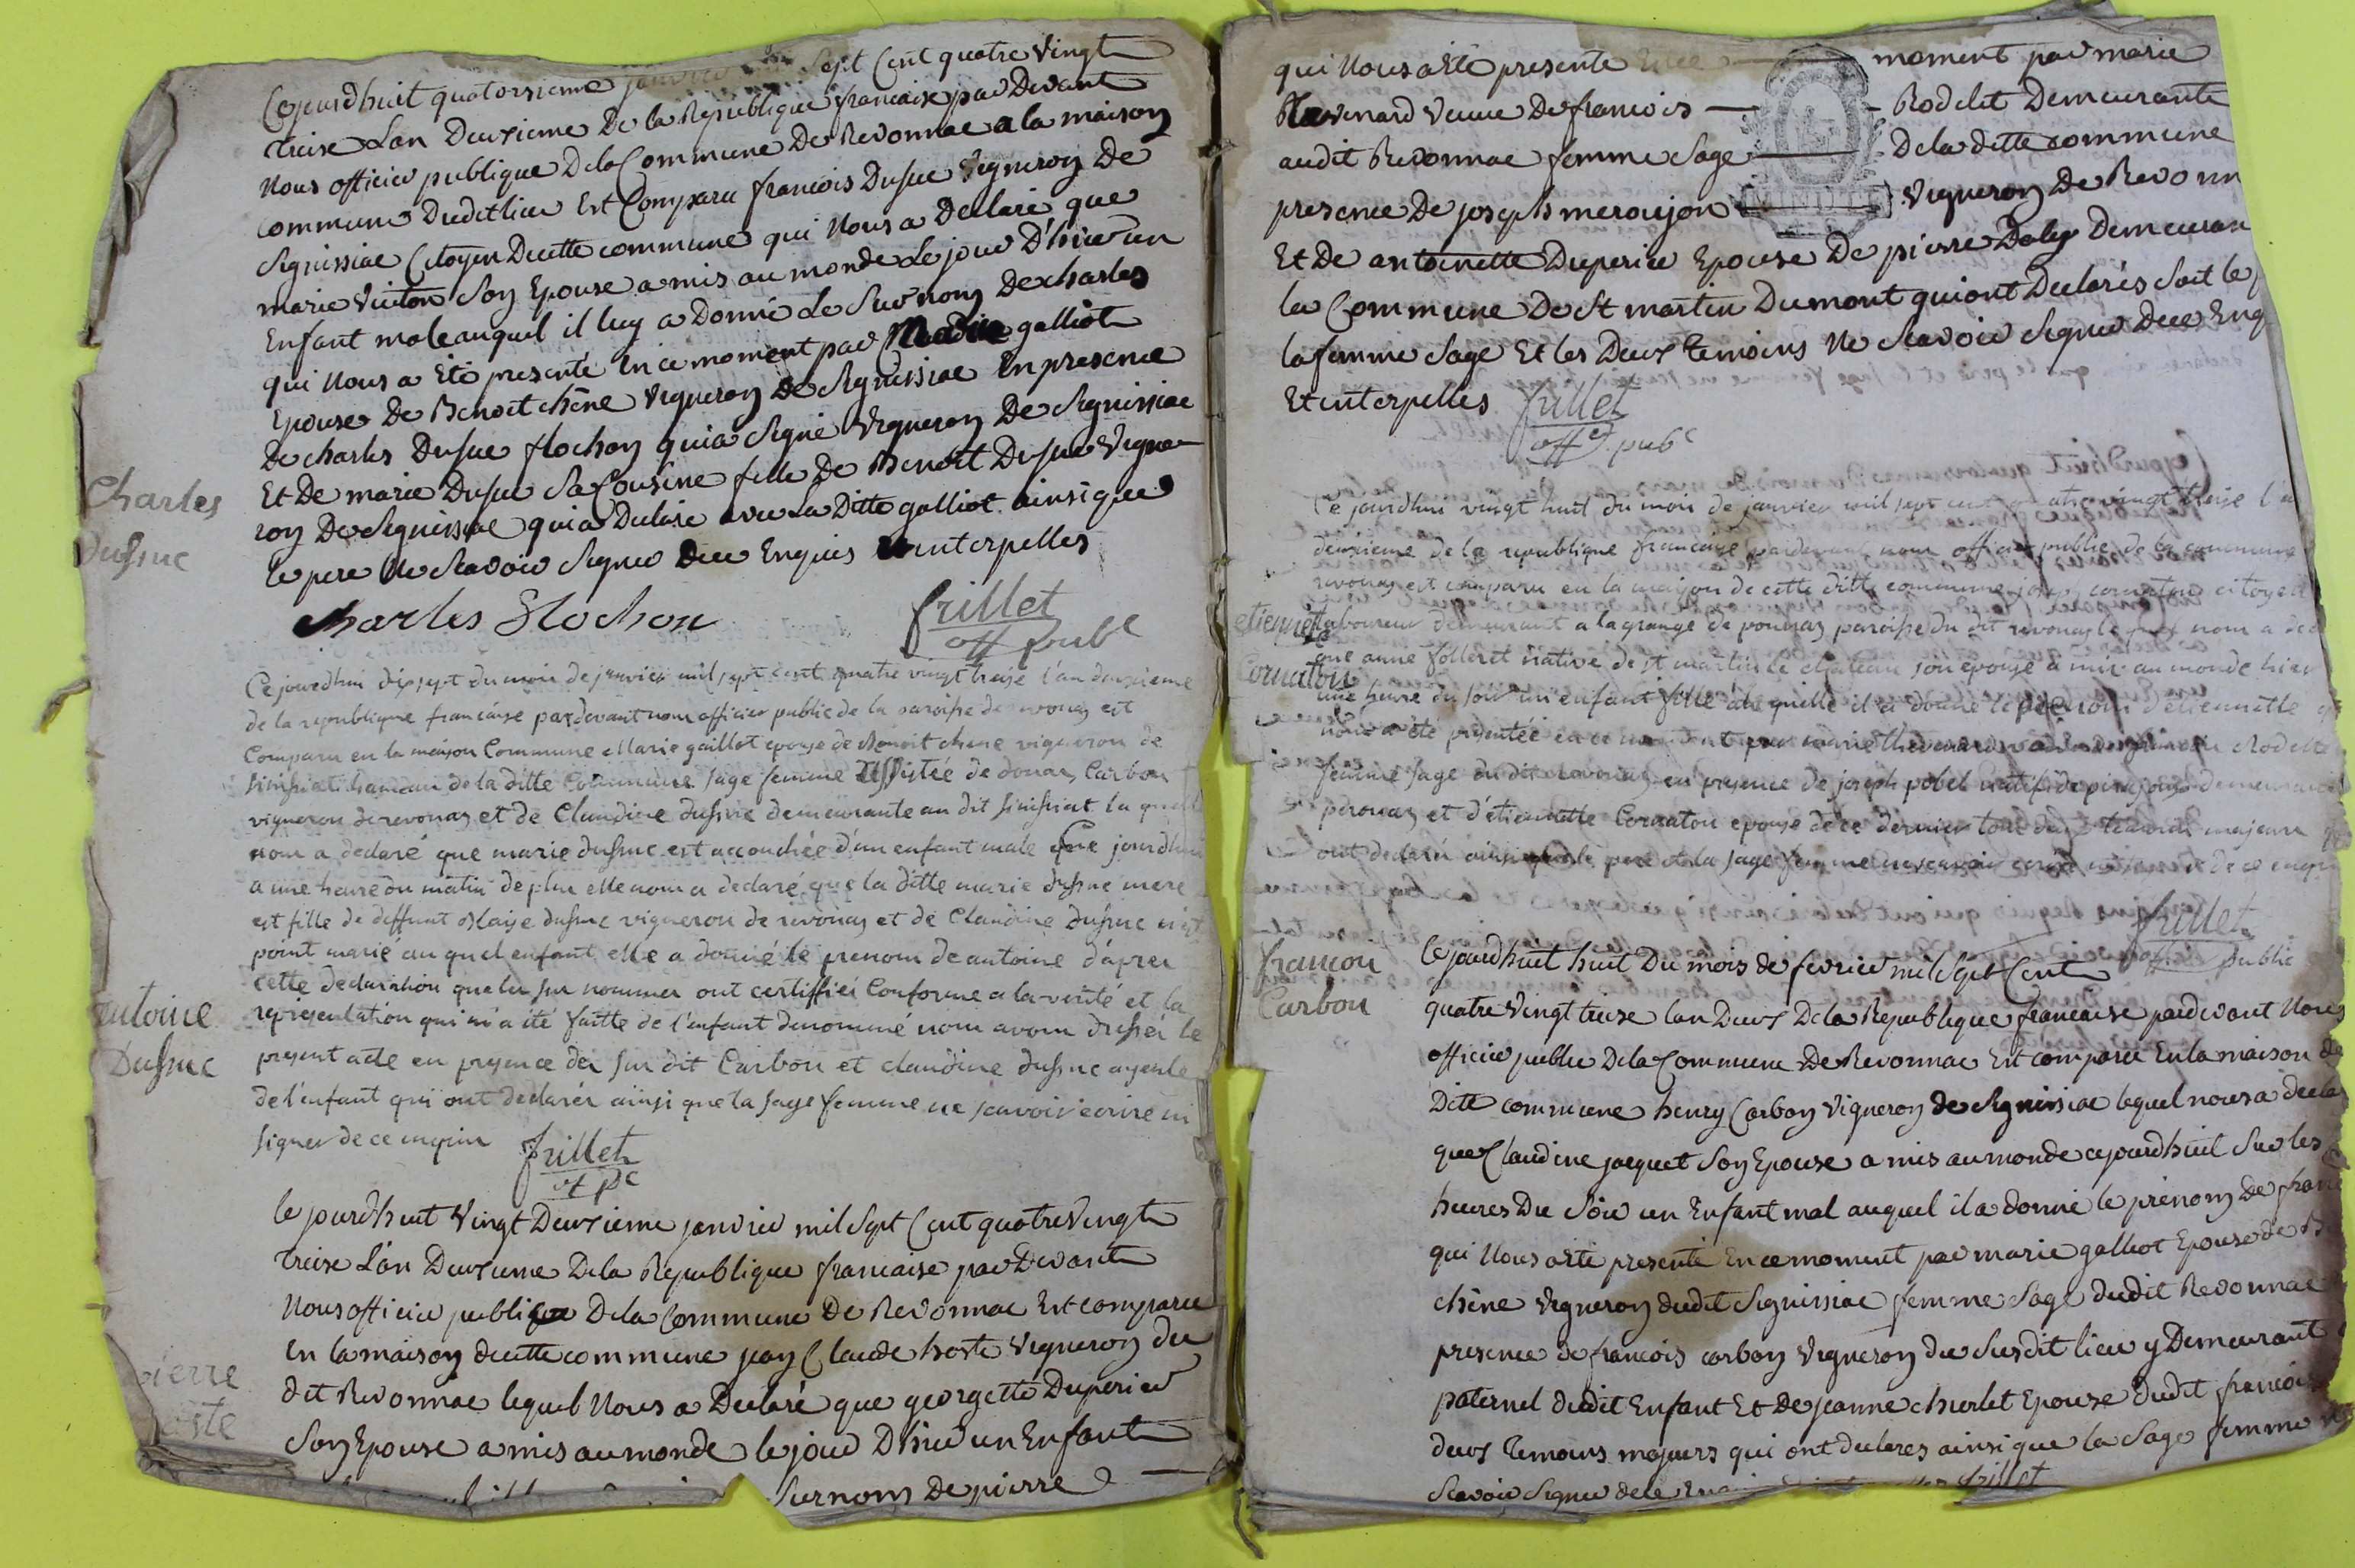 Cejourdhuit quatorsieme janvier mil sept Cent quatre vingt
treise L'an Deuxieme De la Republique francaise par Devant
Nous officier publique De la Commune De Revonnac a la maison
commune Dudit lieu Est Comparu francois Dusuc vigneron De
Signissiac Citoyen De cette commune qui Nous a Declaré que
marie vuiton Son Epouse a mis au monde Le jour D'hier un
Enfant male auquel il luy a Donné Le Surnom De charles
qui Nous a Eté presenté En ce moment par Marie galliot
Epouse De Benoit chêne vigneron De Signissiac En presence
De charles Dusuc flochon qui a Signé vigneron De Signissiac
Et De marie Dusuc Sa Cousine fille De Benoit Dusuc vigne
ron De Signissiac qui a Declaré avec La Ditte galliot ainsi que
le pere Ne Scavoir Signer De ce Enquis interpelles
Charles
Dussuc
charles flochon
frillet
off pub.c
Ce jourdhui dixsept du mois de janvier mil sept cent quatre vingt treise l'an deuxieme
de la republique francaise pardevant nous officier public de la paroisse de revonas est
Comparu en la maison Commune Marie gaillot epouse de Benoit chene vigneron de
sinissiat hameau de la ditte Commune sage femme assistée de Carbon
vigneron de revonas et de Claudine dussuc demeurante au dit sinissiat la quelle
nous a declaré que marie dussuc est accouchée d'un enfant male ce jourdhui
a une heure du matin de plus elle nous a declaré que la ditte marie dussuc mere
est fille de deffunt Blaise dussuc vigneron de revonas et de Claudine dussuc n'est
point marié au quel enfant elle a donné le prenom de antoine d'apres
cette declaration que les sus nommés ont certiffiés Conforme a la verité et la
representation qui m'a été faitte de l'enfant denommé nous avons dressés le
present acte en presence des sus dit Carbon et claudine dussuc ayeule
de l'enfant qui ont declarés ainsi que la sage femme ne scavoir ecrire ni
signer de ce enquis
antoine
Dussuc
frillet
of pc
Ce jourdhuit vingt Deuxieme janvier mil Sept Cent quatre vingt
treise L'an Deuxieme De la Republique francaise par Devant
Nous officier publique De la Commune De Revonnac Est comparu
En la maison de cette commune jean Claude hoste vigneron du
dit Revonnac lequel Nous a Declaré que georgette Duperier
Son Epouse a mis au monde le jour D'hier un Enfant
Surnom De pierre
pierre
hoste
qui Nous a Eté presenté En ce moment par marie
Thevenard veuve De francois Rodelet Demeurante
audit Revonnac femme Sage De la ditte commune
presence De joseph meraujon vigneron De Revonn
Et De antoinette Duperier Epouse De pierre Daly Demeuran
la Commune De St martin Dumont qui ont Declarés Soit le p
la femme Sage Et les Deux temoins Ne Scavoir Signer De ce Enq
Et interpelles
frillet
off.r pub.c
Ce jourdhui vingt huit du mois de janvier mil sept cent quatre vingt treise l'a
deuxieme de la republique francaise pardevant nous officier public de la commune
revonas est comparu en la maison de cette ditte commune joseph cornaton citoyen
laboureur demeurant a la grange de pommas paroisse du dit revonas le quel nous a dec
que anne folleret native de st martin le chateau son epouse a mis au monde hier
une heure du soir un enfant fille a la quelle il a donné le prenom d'etiennette
nous a été presentée en ce moment par marie thevenard veuve de francois Rodelet
femme sage du dit revonas en presence de joseph pobel demeurant
perouas et d'étiennette Cornaton epouse de ce dernier tous deux temoins majeurs
ont declarés ainsi que le pere et la sage femme ne scavoir ecrire ni signer de ce enquis
etiennette
Cornaton
frillet
public
Ce jourdhuit huit Du mois de fevrier mil Sept Cent
quatre vingt treise lan Deux De la Republique francaise pardevant Nous
officier public De la Commune De Revonnac Est comparu En la maison de
Ditte commune henry Carbon vigneron de Signissiac lequel nous a decla
que Claudine jacquet Son Epouse a mis au monde cejourdhuit Sur les
heures Du Soir un Enfant mal auquel il a donné le prénom De fran
qui Nous a Eté presenté En ce moment par marie galliot Epouse de B
chêne vigneron dudit Signissiac femme Sage dudit Revonnac
presence de francois carbon vigneron du Susdit lieu y Demeurant
paternel dudit Enfant Et De jeanne churlet Epouse dudit francois
deux temoins majeurs qui ont declarés ainsi que la Sage femme
Scavoir Signer de ce frillet
francois
Carbon